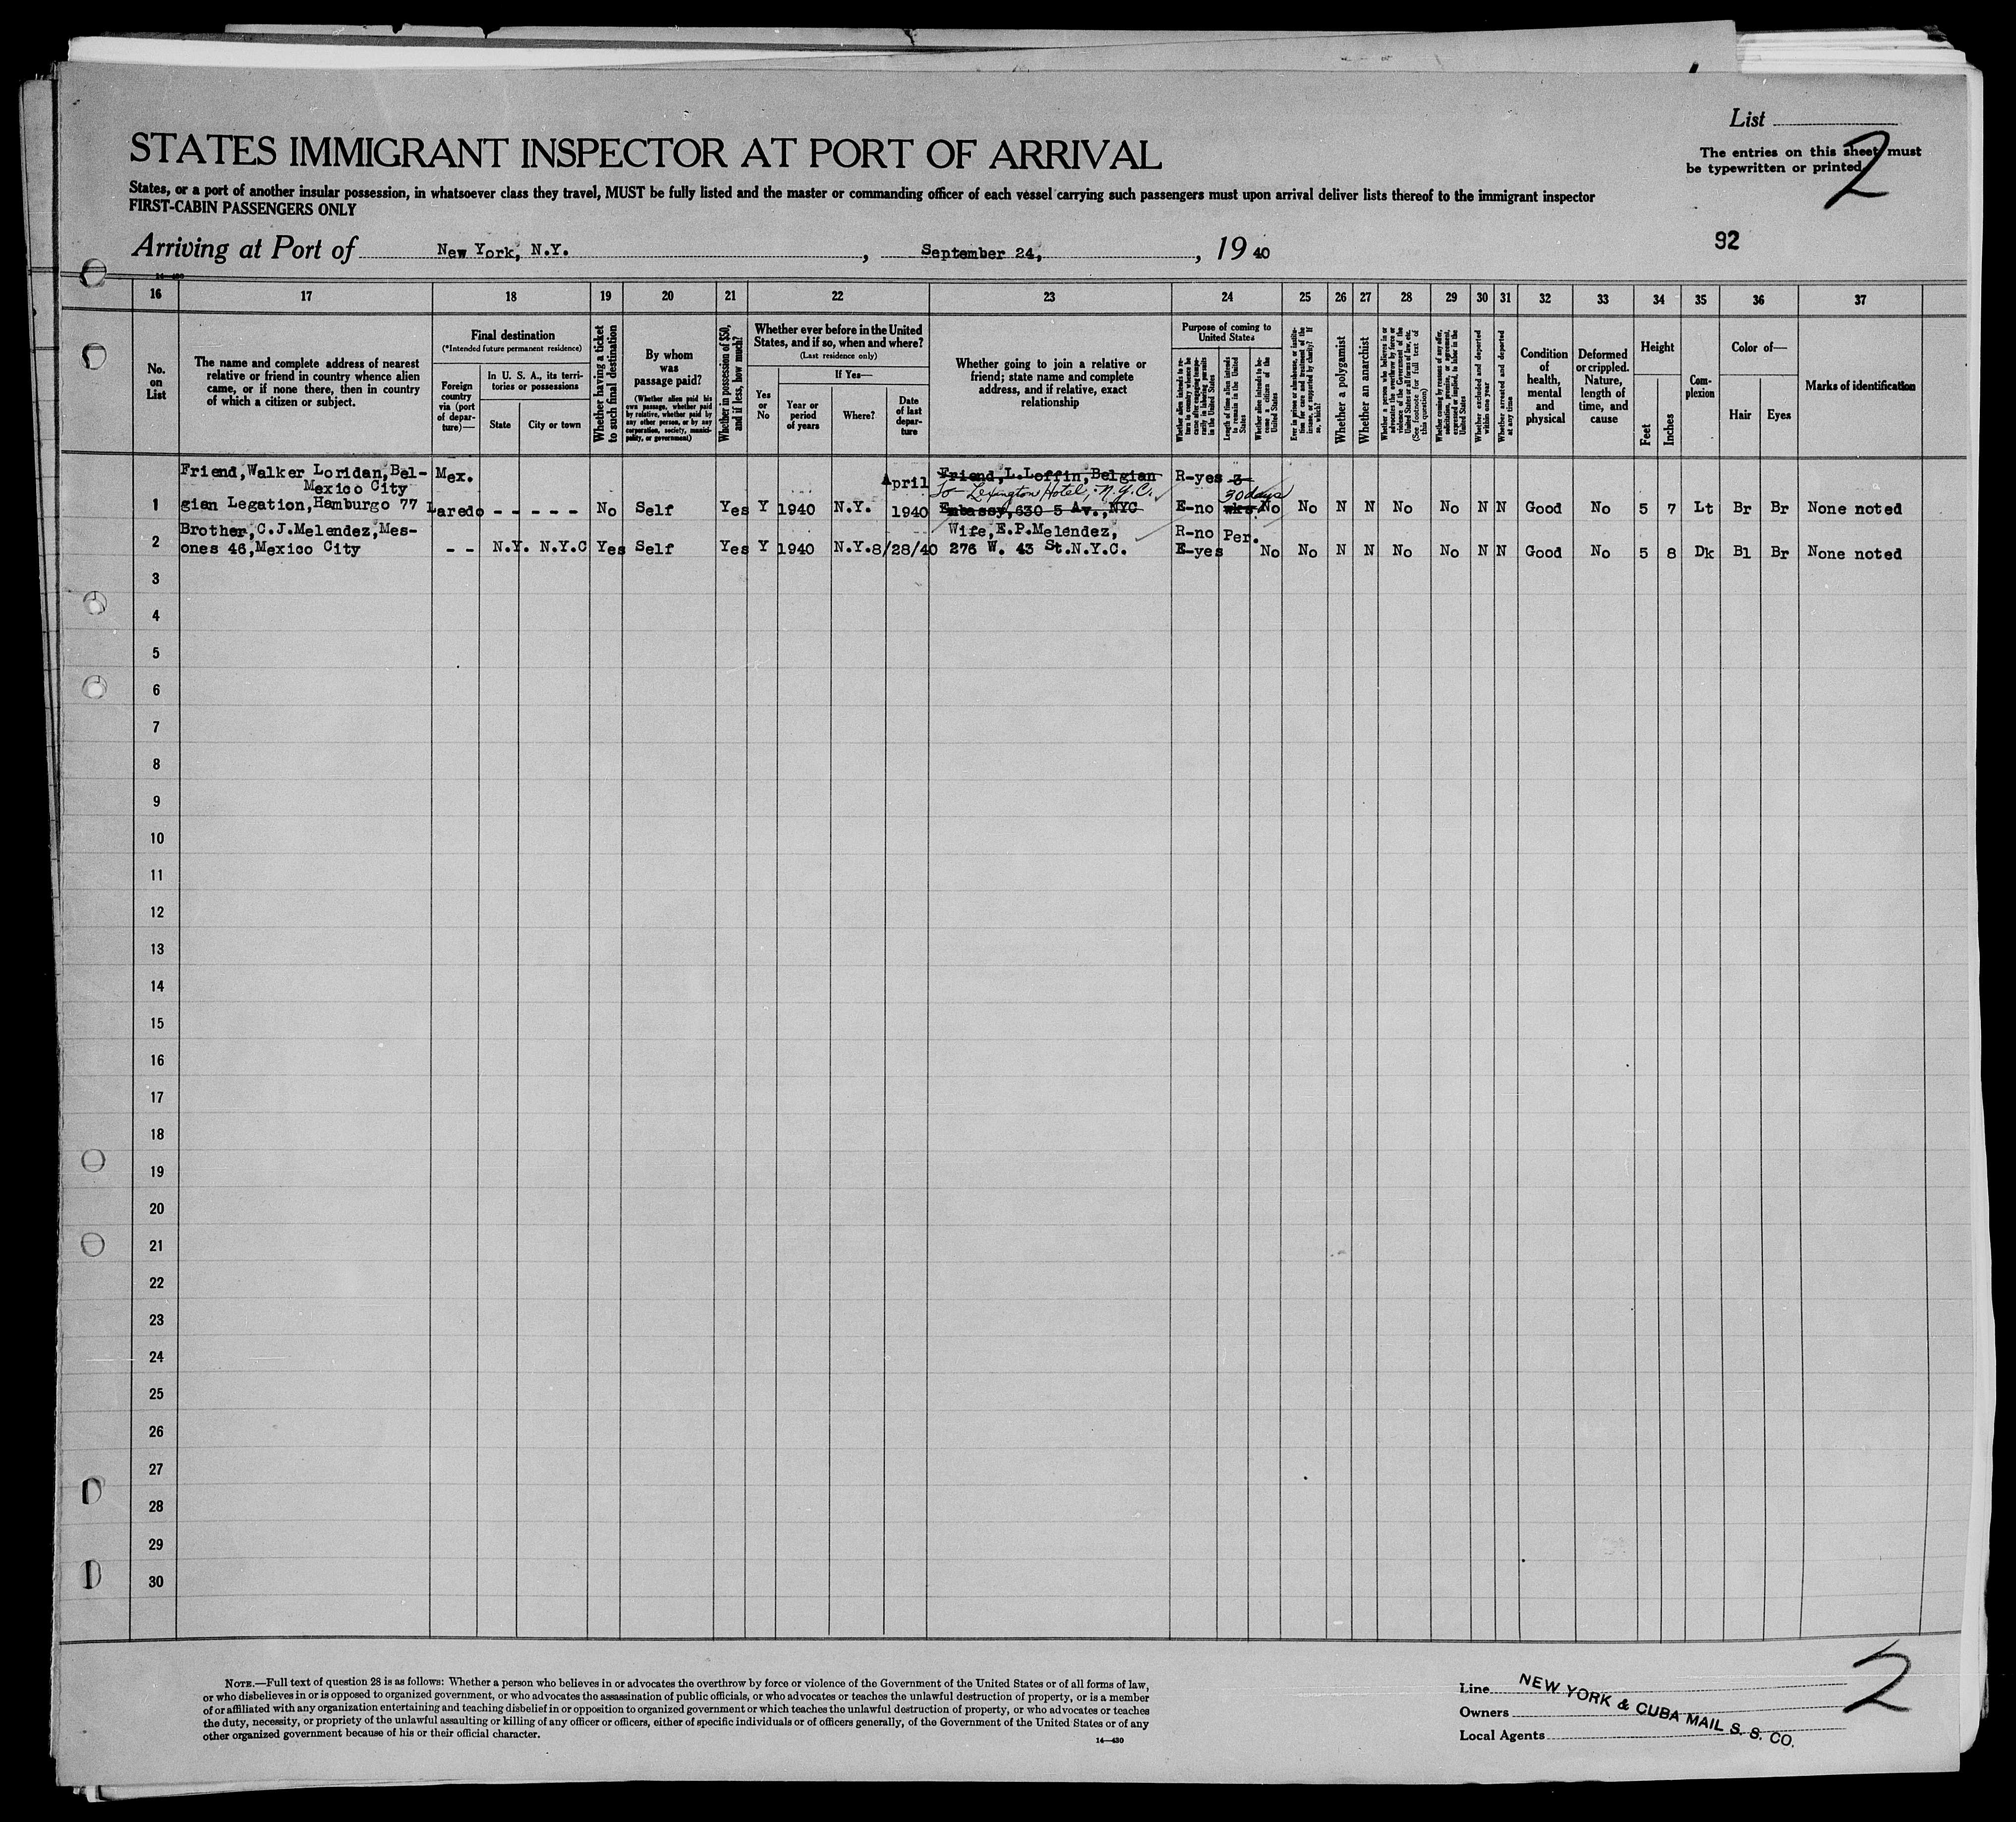 List
The entries on this sheet must
be typewritten or printed
2
STATES IMMIGRANT INSPECTOR AT PORT OF ARRIVAL
States, or a port of another insular possession, in whatsoever class they travel, MUST be fully listed and the master or commanding officer of each vessel carrying such passengers must upon arrival deliver lists thereof to the immigrant inspector
FIRST-CABIN PASSENGERS ONLY
Arriving at Port of New York, N.Y., September 24, 1940
92
14-430
16 17 18 19 20 21 22 23 24 25 26 27 28 29 30 31 32 33 34 35 36 37
No. on List
The name and complete address of nearest relative or friend in country whence alien came, or if none there, then in country of which a citizen or subject.
Final destination
(*Intended future permanent residence)
Foreign country via (port of departure)—
In U. S. A., its territories or possessions
State
City or town
Whether having a ticket to such final destination
By whom was passage paid?
(Whether alien paid his own passage, whether paid by relative, whether paid by any other person, or by any corporation, society, municipality, or government)
Whether in possession of $50, and if less, how much?
Whether ever before in the United States, and if so, when and where?
(Last residence only)
Yes or No
If Yes—
Year or period of years
Where?
Date of last departure
Whether going to join a relative or friend; state name and complete address, and if relative, exact relationship
Purpose of coming to United States
Whether alien intends to return to country whence he came after engaging temporarily in laboring pursuits in the United States
Length of time alien intends to remain in the United States
Whether alien intends to become a citizen of the United States
Ever in prison or almshouse, or institution for care and treatment of the insane, or supported by charity? If so, which?
Whether a polygamist
Whether an anarchist
Whether a person who believes in or advocates the overthrow by force or violence of the Government of the United States or all forms of law, etc. (See footnote for full text of this question)
Whether coming by reason of any offer, solicitation, promise, or agreement, expressed or implied, to labor in the United States
Whether excluded and deported within one year
Whether arrested and deported at any time
Condition of health, mental and physical
Deformed or crippled. Nature, length of time, and cause
Height
Feet
Inches
Complexion
Color of—
Hair
Eyes
Marks of identification
Friend,Walker Loridan,Bel- Mex. April Friend,L.Loffin,Belgian R-yes 3
Mexico City To- Lexington Hotel,-N.Y.C. 30 days
1 gian Legation,Hamburgo 77 Laredo - - - - - No Self Yes Y 1940 N.Y. 1940 Embassy,630 5 Av.,NYC E-no wks No No N N No No N N Good No 5 7 Lt Br Br None noted
Brother,C.J.Melendez,Mes- Wife,E.P.Melendez, R-no Per.
2 ones 46,Mexico City - - N.Y. N.Y.C Yes Self Yes Y 1940 N.Y. 8/28/40 276 W. 43 St.N.Y.C. E-yes No No N N No No N N Good No 5 8 Dk Bl Br None noted
3
4
5
6
7
8
9
10
11
12
13
14
15
16
17
18
19
20
21
22
23
24
25
26
27
28
29
30
NOTE.—Full text of question 28 is as follows: Whether a person who believes in or advocates the overthrow by force or violence of the Government of the United States or of all forms of law,
or who disbelieves in or is opposed to organized government, or who advocates the assassination of public officials, or who advocates or teaches the unlawful destruction of property, or is a member
of or affiliated with any organization entertaining and teaching disbelief in or opposition to organized government or which teaches the unlawful destruction of property, or who advocates or teaches
the duty, necessity, or propriety of the unlawful assaulting or killing of any officer or officers, either of specific individuals or of officers generally, of the Government of the United States or of any
other organized government because of his or their official character.
14—430
Line
Owners
Local Agents
NEW YORK & CUBA MAIL S. S. CO.
2